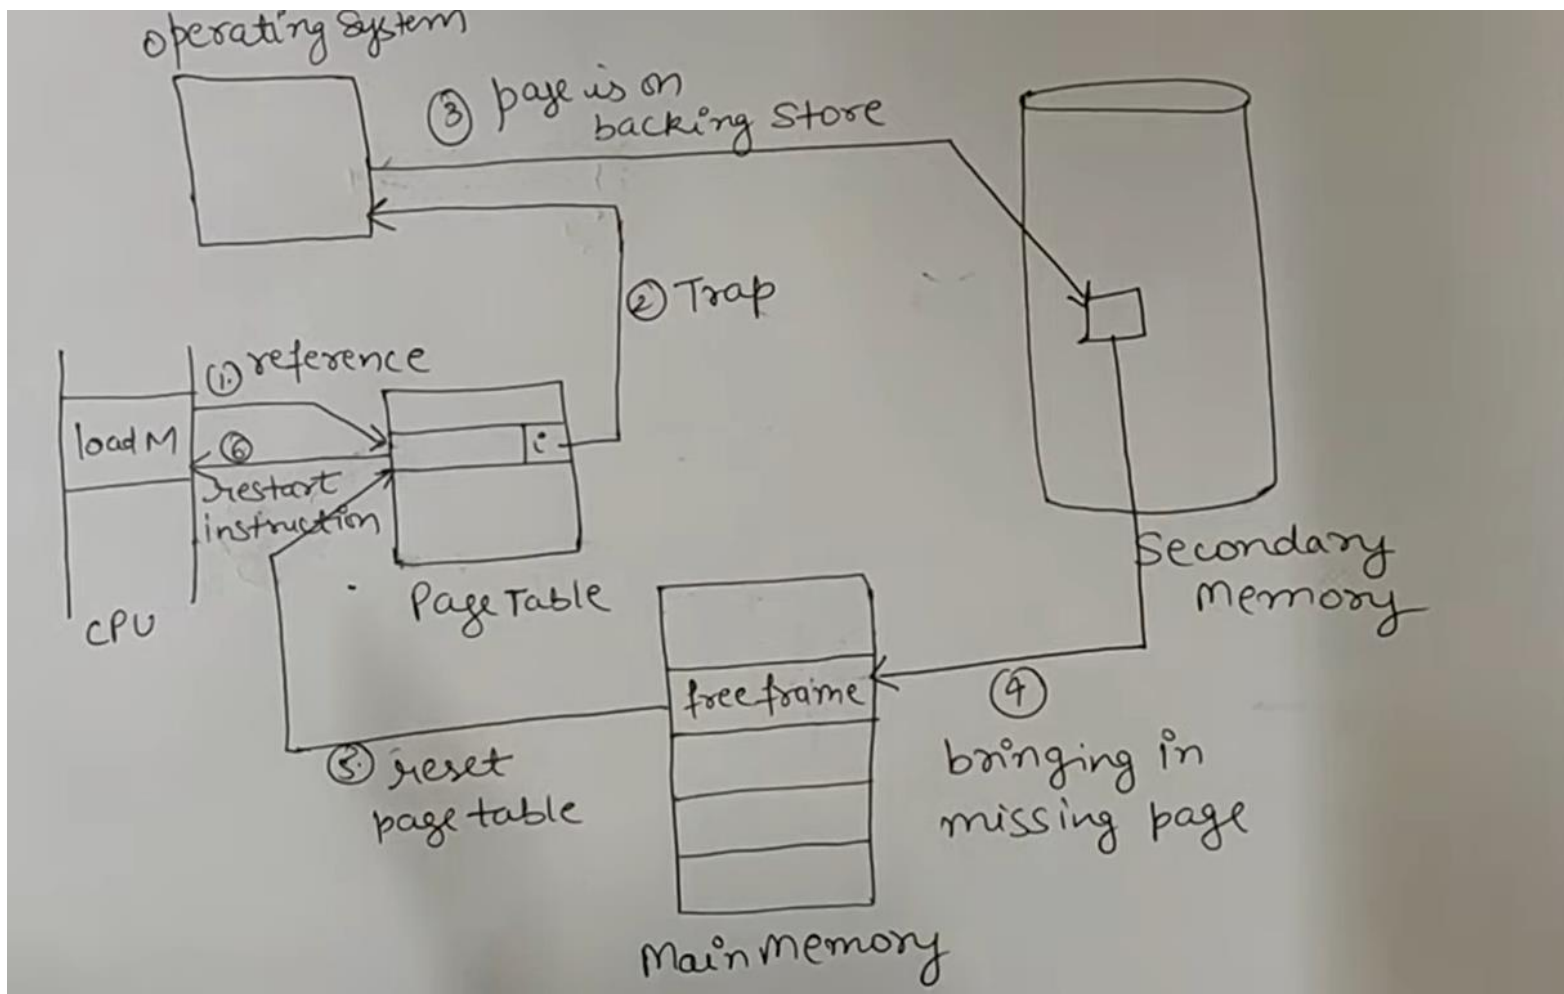 operating system
③ page is on
backing store
② Trap
① reference
load M
i
⑥
restart
instruction
CPU
Page Table
Secondary
Memory
free frame
④
bringing in
missing page
⑤ reset
page table
Main Memory